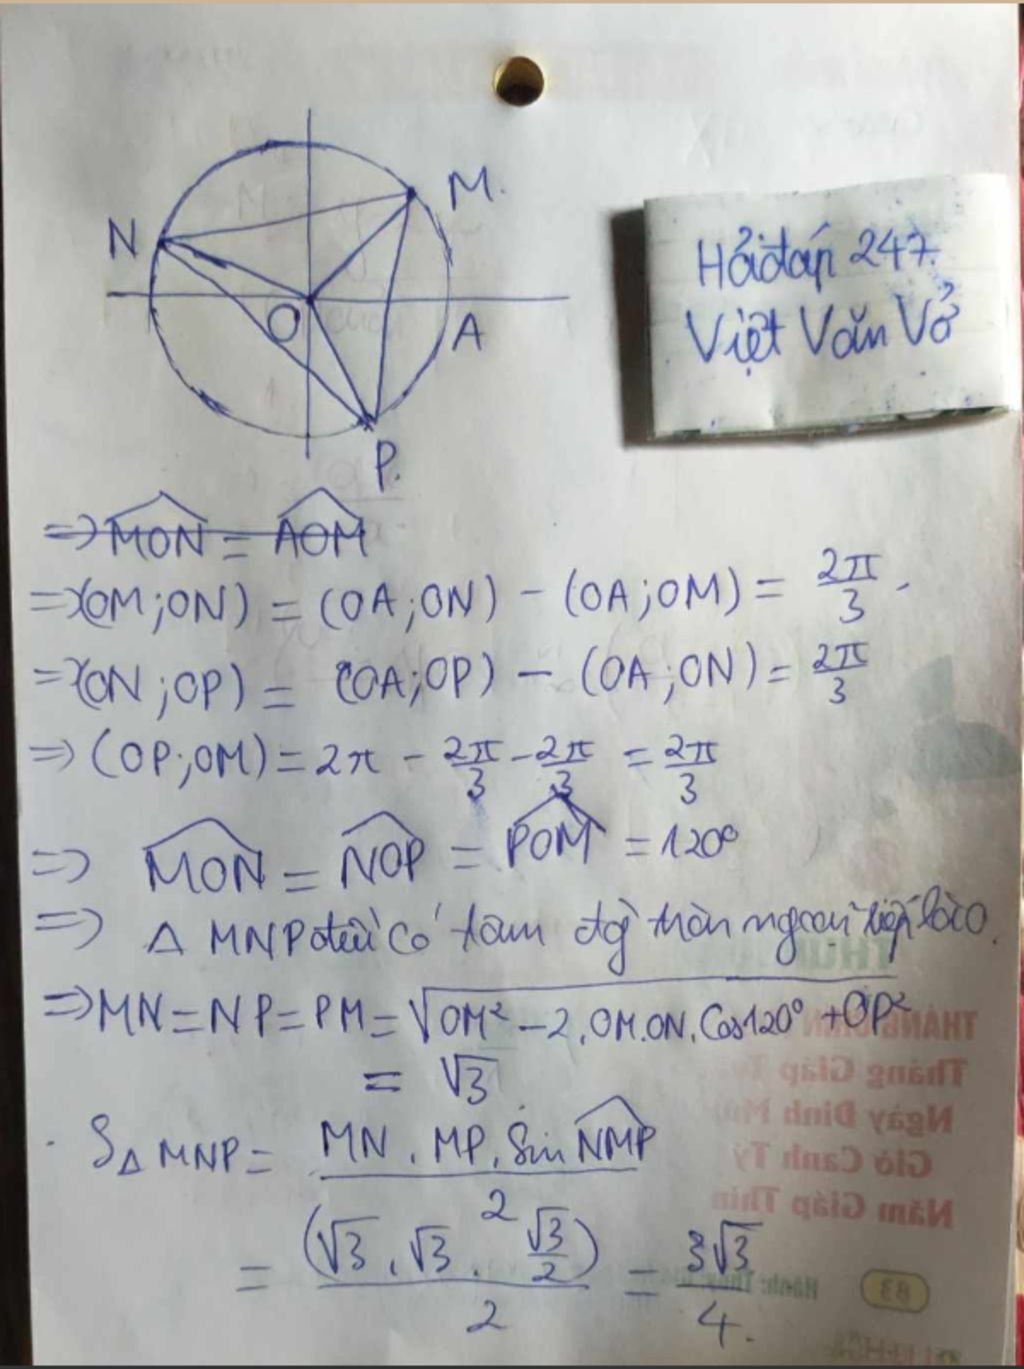 N
M.
O
A
P.
Hỏiđáp 247.
Việt Văn Vở
=> MON = AOM
=> (OM;ON) = (OA;ON) - (OA;OM) = 2π/3.
=> (ON;OP) = (OA;OP) - (OA;ON) = 2π/3
=> (OP;OM) = 2π - 2π/3 - 2π/3 = 2π/3
=> MON = NOP = POM = 120°
=> Δ MNP đều có tâm đg tròn ngoại tiếp là O.
=> MN = NP = PM = √OM² - 2.OM.ON.Cos120° + OP²
= √3
SΔ MNP = MN . MP. Sin NMP / 2
= (√3 . √3 . √3/2) / 2 = 3√3 / 4.
Tháng Giáp
Ngày Đinh
Giờ Canh Tý
Năm Giáp Thìn
83